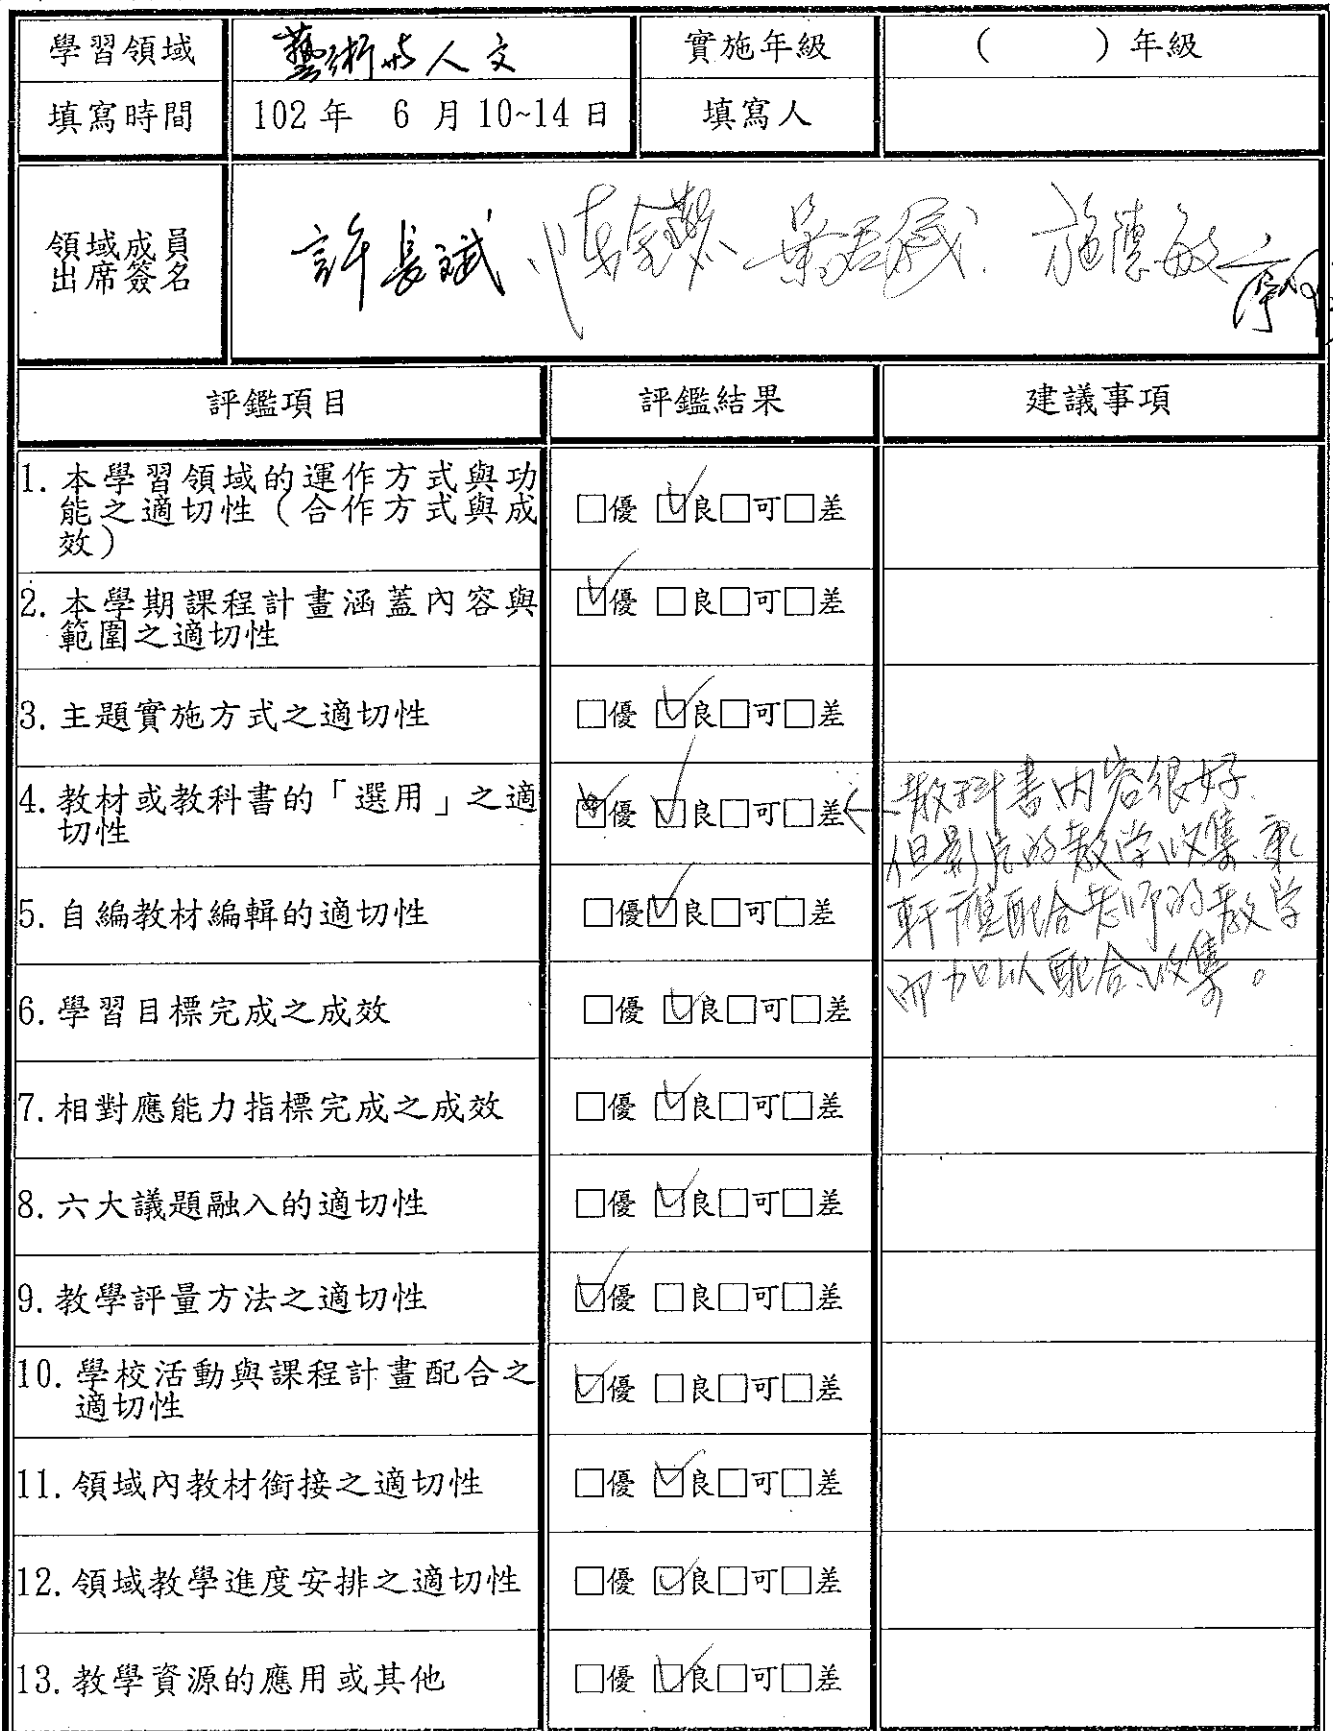 學習領域 藝術與人文 實施年級 ( ) 年級
填寫時間 102 年 6 月 10~14 日 填寫人
領域成員
出席簽名
許長斌 施德敏
評鑑項目 評鑑結果 建議事項
1. 本學習領域的運作方式與功
能之適切性(合作方式與成
效)
□優 ☑良□可□差
2. 本學期課程計畫涵蓋內容與
範圍之適切性
☑優 □良□可□差
3. 主題實施方式之適切性 □優 ☑良□可□差
4. 教材或教科書的「選用」之適
切性
☑優 ☑良□可□差
←教科書內容很好.
但影片的教学收集.東
軒 應配合老師的教学
而加以配合收集。
5. 自編教材編輯的適切性 □優☑良□可□差
6. 學習目標完成之成效 □優 ☑良□可□差
7. 相對應能力指標完成之成效 □優 ☑良□可□差
8. 六大議題融入的適切性 □優 ☑良□可□差
9. 教學評量方法之適切性 ☑優 □良□可□差
10. 學校活動與課程計畫配合之
適切性
☑優 □良□可□差
11. 領域內教材銜接之適切性 □優 ☑良□可□差
12. 領域教學進度安排之適切性 □優 ☑良□可□差
13. 教學資源的應用或其他 □優 ☑良□可□差